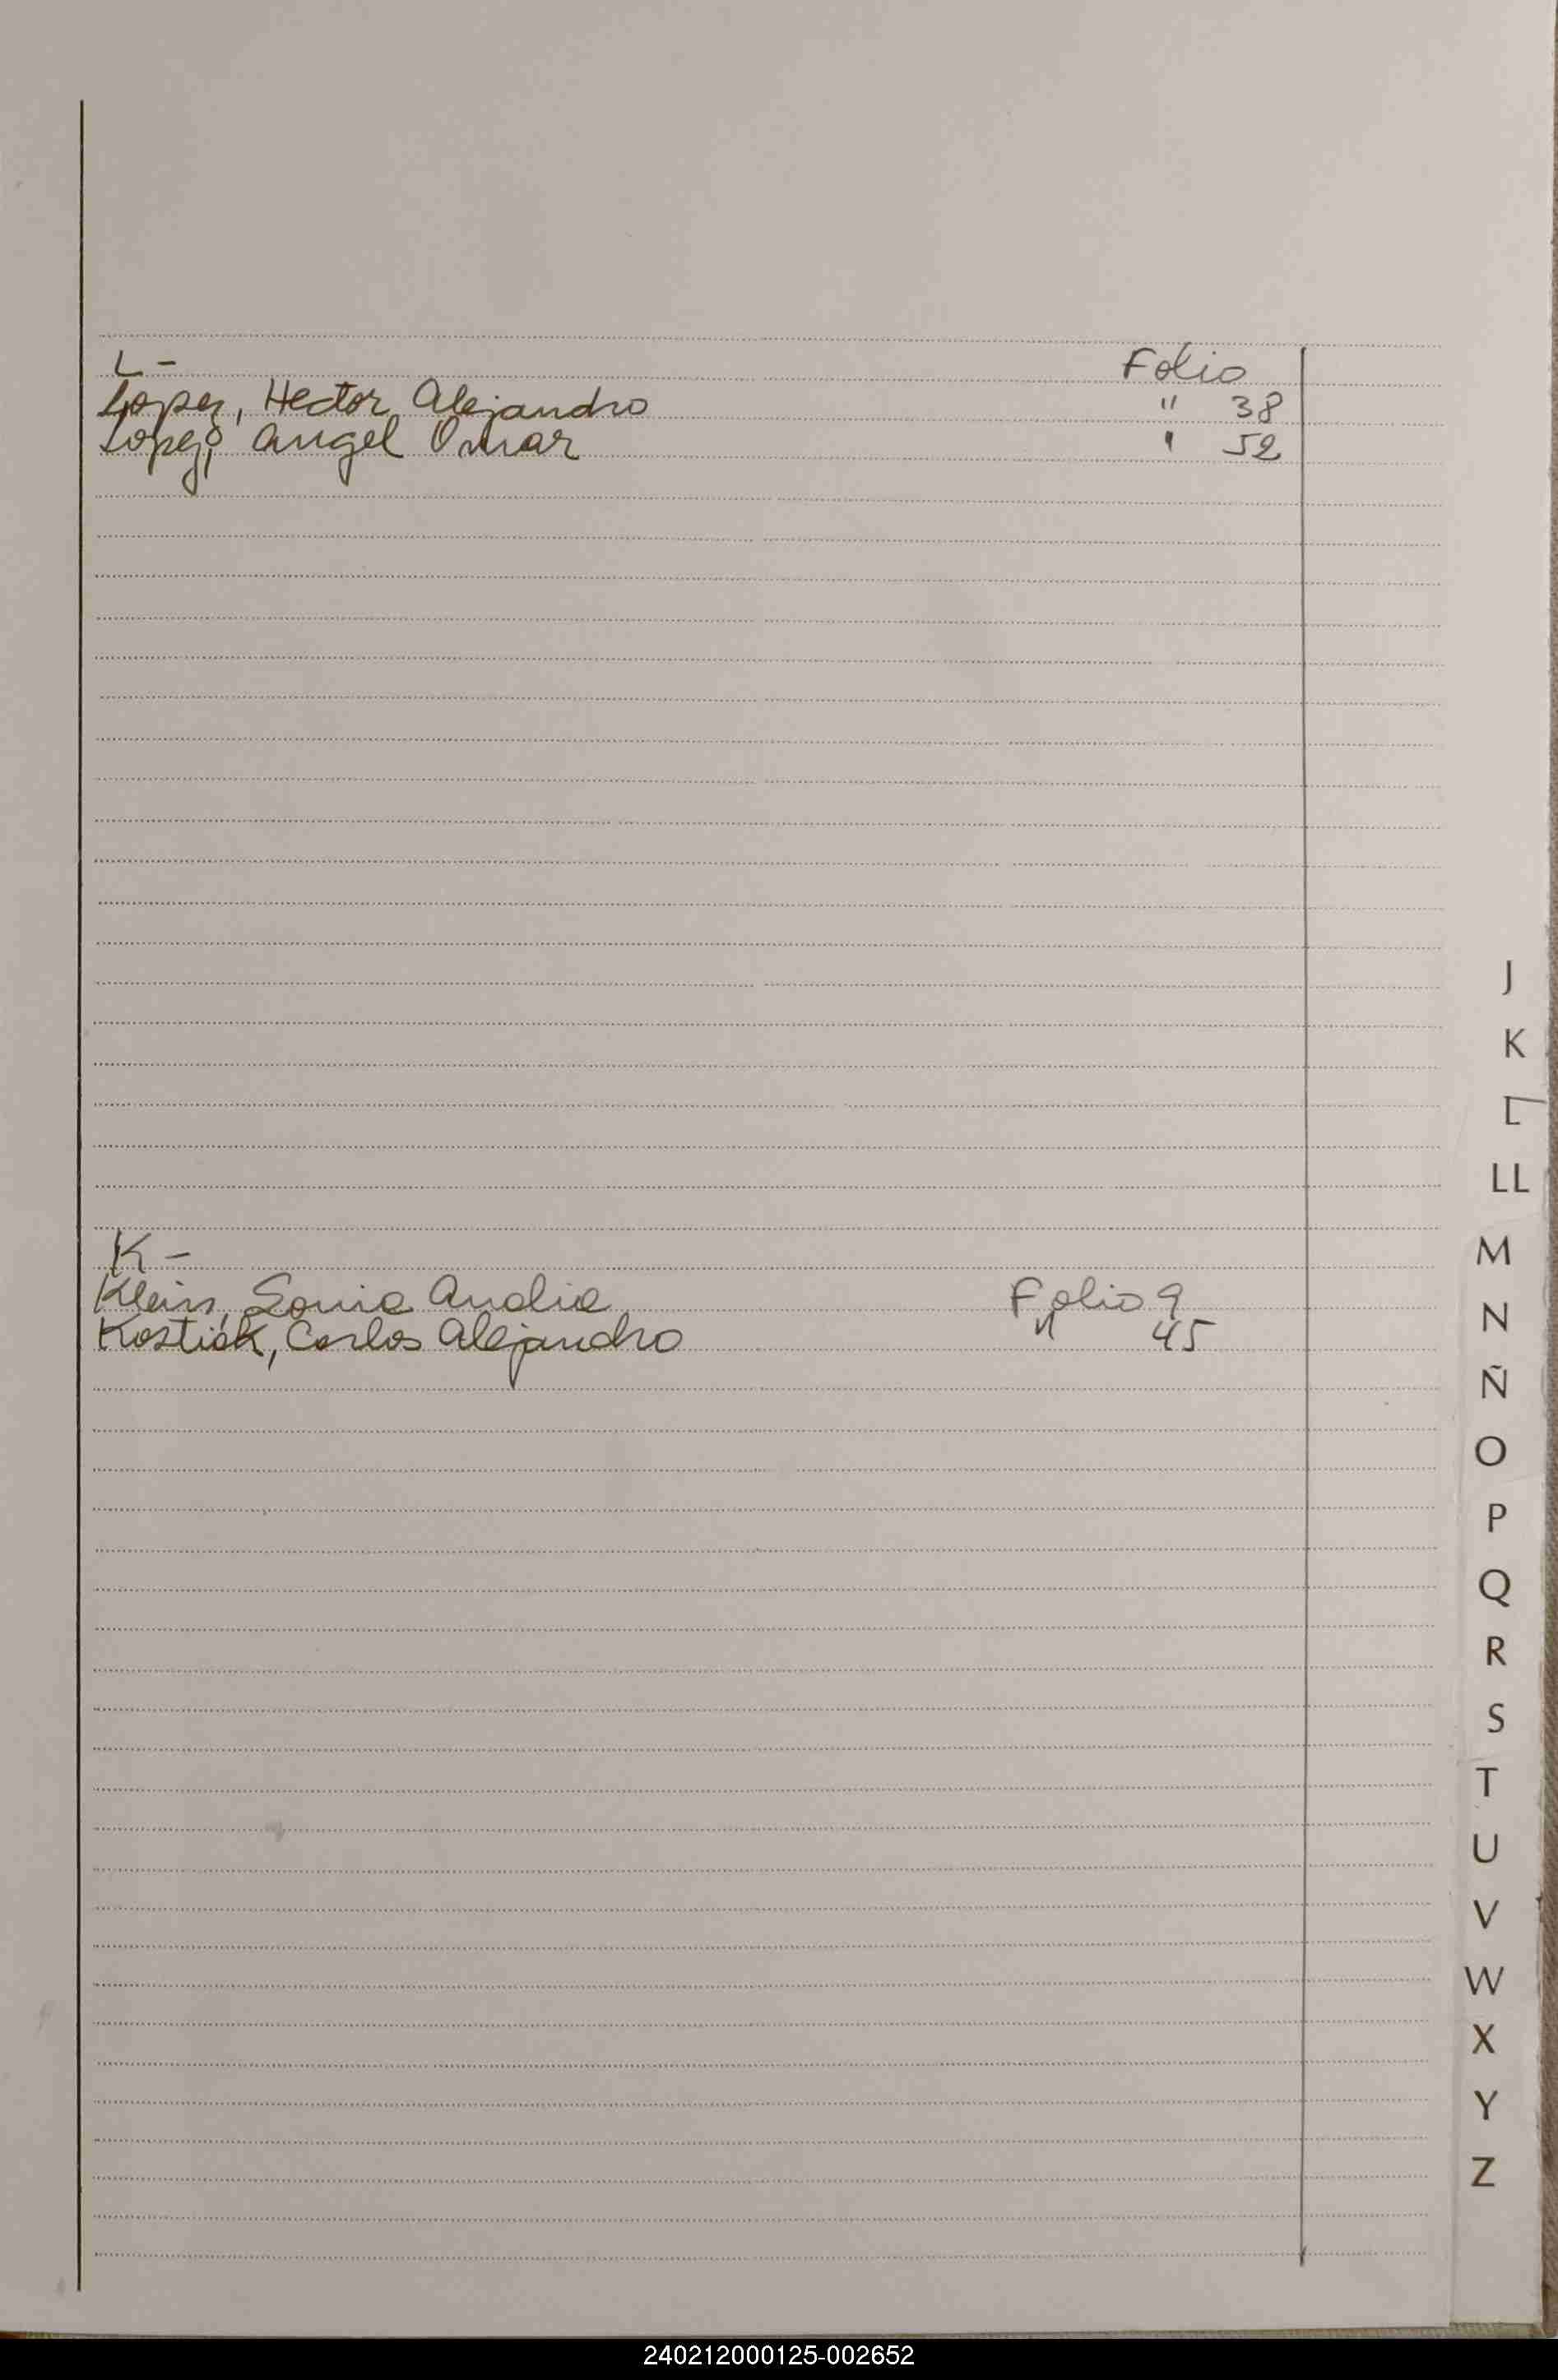 L - Folio
Lopez, Hector Alejandro " 38
Lopez, Angel Omar " 52
K -
Klein, Sonia Analia Folio 9
Kostiak, Carlos Alejandro " 45
J
K
L
LL
M
N
Ñ
O
P
Q
R
S
T
U
V
W
X
Y
Z
240212000125-002652